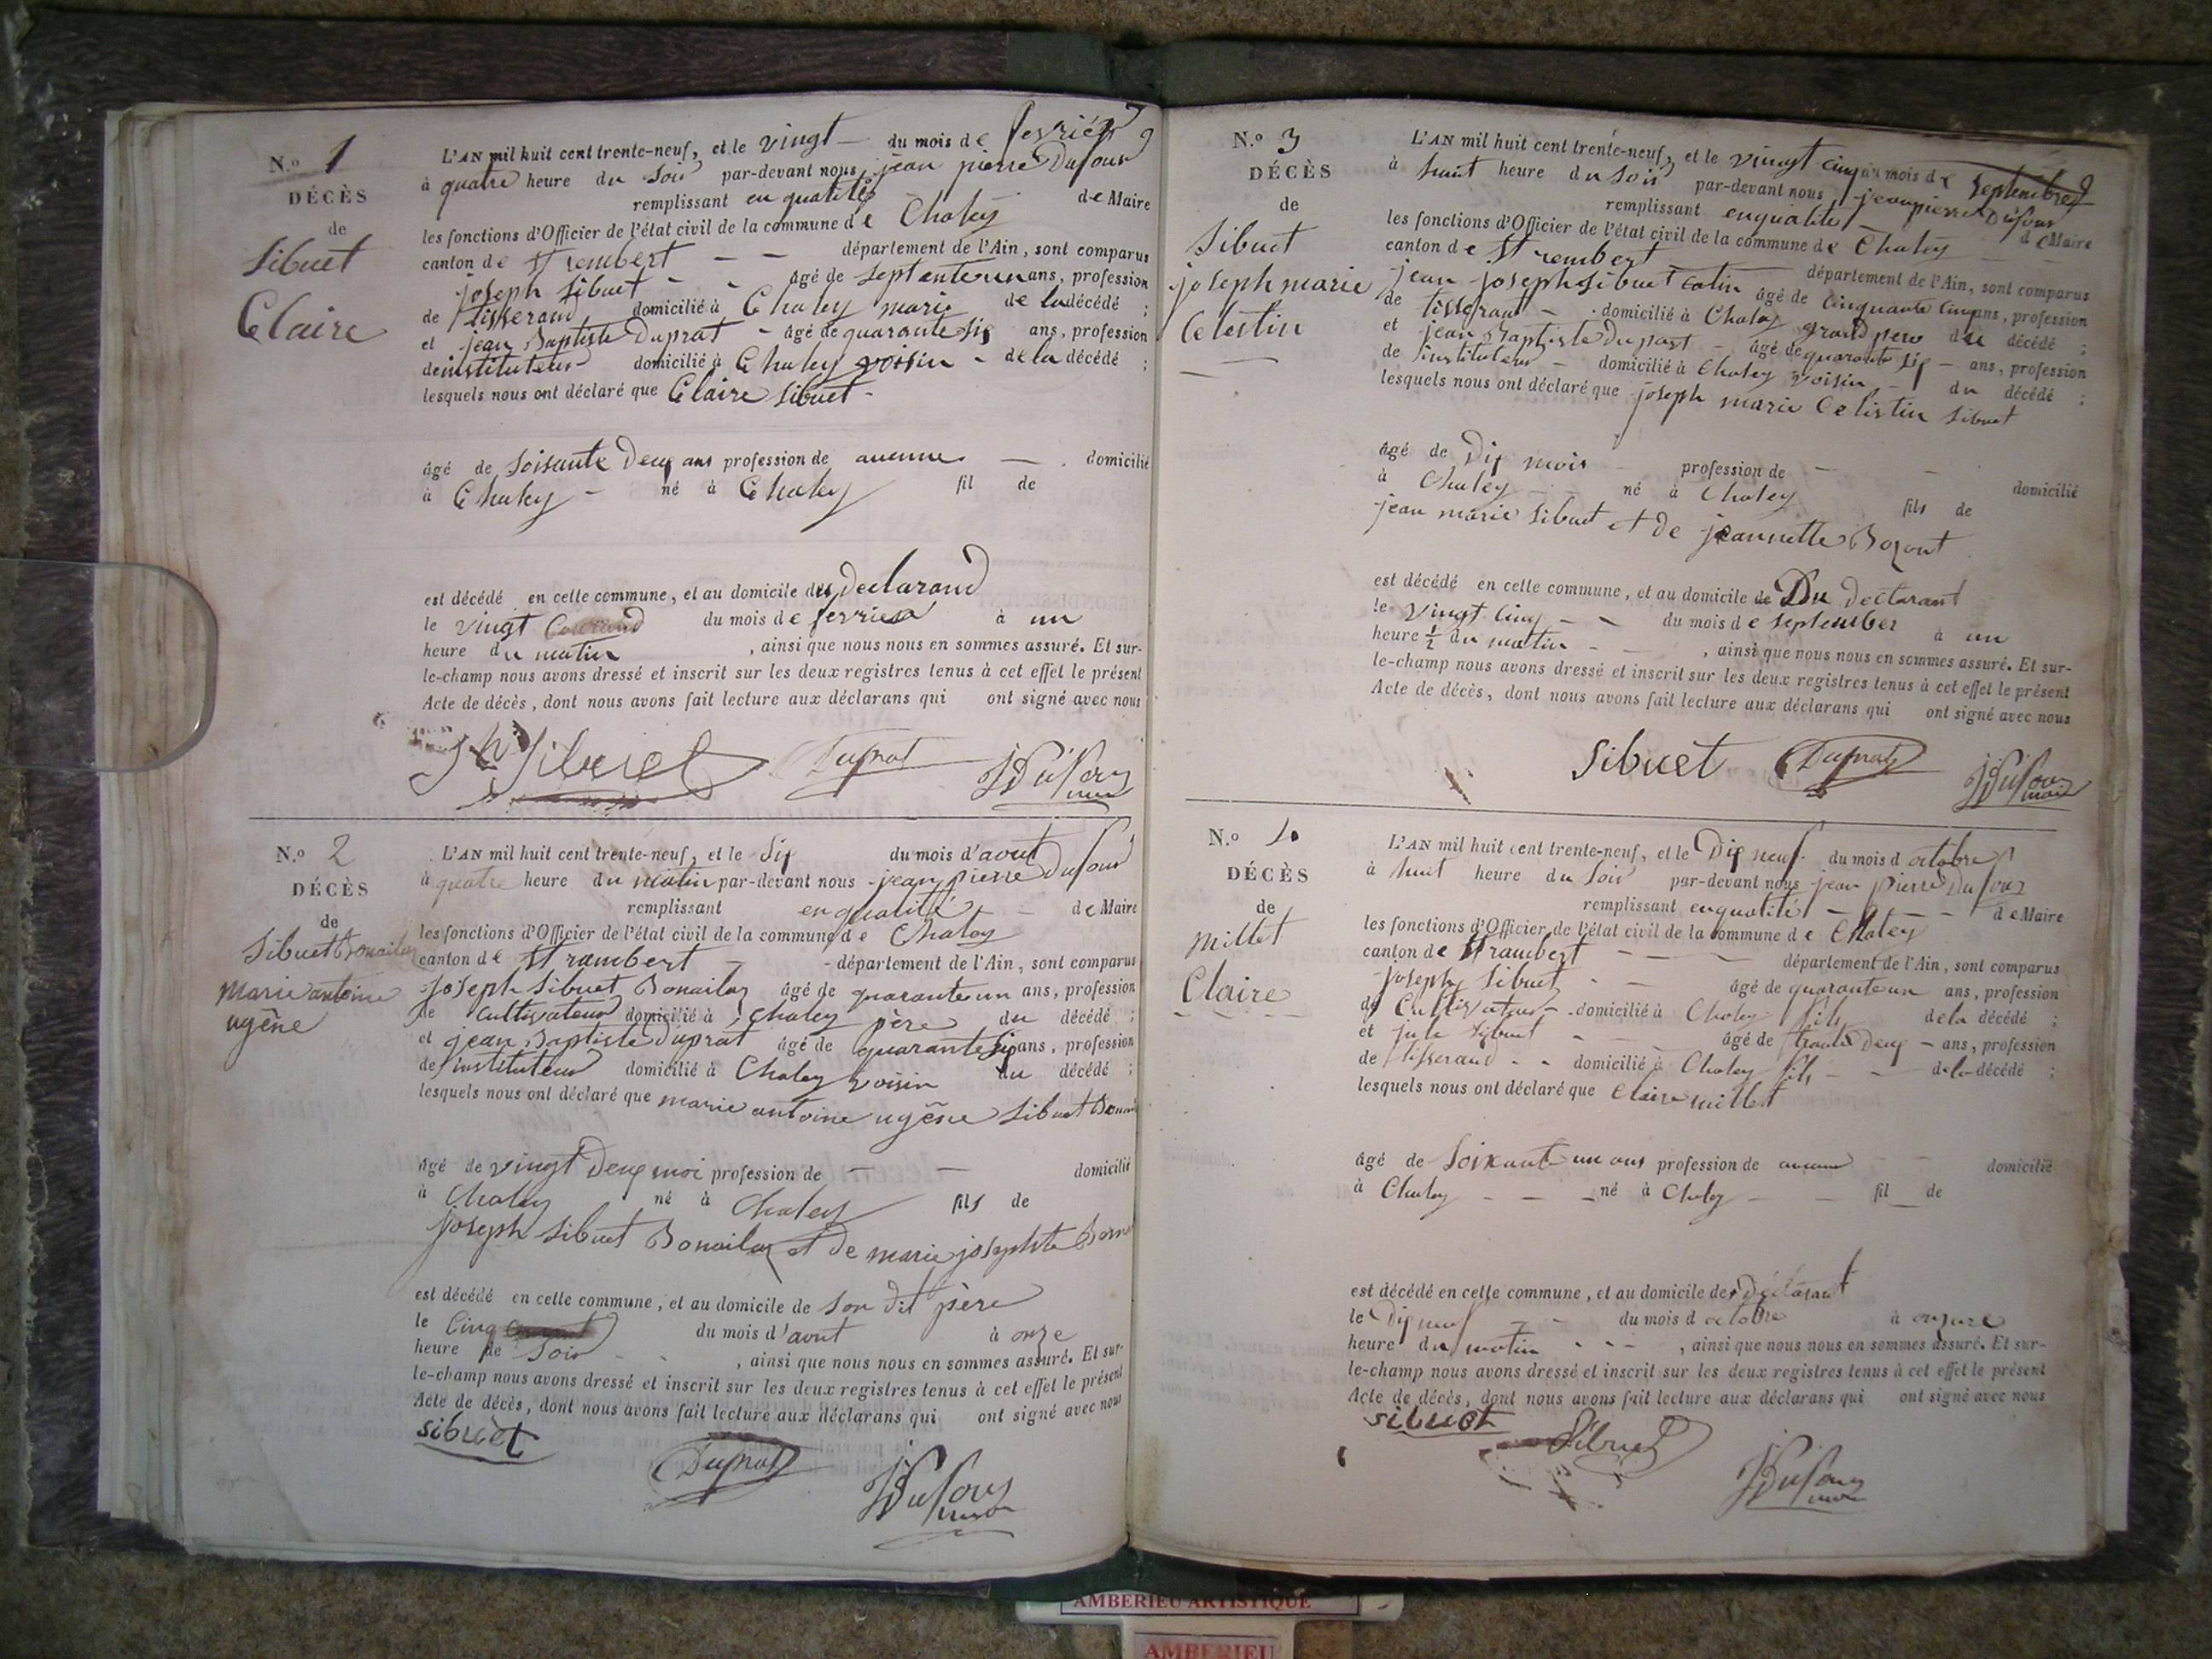 N.o 1
DÉCÈS
de
Sibuet
Claire
L'AN mil huit cent trente-neuf, et le vingt — du mois de fevrier
à quatre heure du Soir par-devant nous, jean pierre Dufour
remplissant en qualité de Maire
les fonctions d'Officier de l'état civil de la commune de Chaley
canton de St rembert — — département de l'Ain, sont comparus
joseph Sibuet - - âgé de septente un ans, profession
de tisserand domicilié à Chaley mari de la décédé ;
et jean Baptiste Duprat - âgé de quarante six ans, profession
de instituteur domicilié à Chaley voisin - de la décédé ;
lesquels nous ont déclaré que Claire Sibuet -
âgé de soisante deux ans profession de aucune — . domicilié
à Chaley - né à Chaley fil de
est décédé en cette commune, et au domicile du declarand
le vingt du mois de fevrier à un
heure du matin , ainsi que nous nous en sommes assuré. Et sur-
le-champ nous avons dressé et inscrit sur les deux registres tenus à cet effet le présent
Acte de décès, dont nous avons fait lecture aux déclarans qui ont signé avec nous
Sibuet Duprat JPDufour
maire
N.o 2
DÉCÈS
de
Sibuet Bonailaz
marie antoine
ugène
L'AN mil huit cent trente-neuf, et le Six du mois d'aout
à quatre heure du matin par-devant nous jean pierre Dufour
remplissant en qualité - de Maire
les fonctions d'Officier de l'état civil de la commune de Chaley
canton de St rambert - - département de l'Ain, sont comparus
joseph Sibuet Bonailaz âgé de quarante un ans, profession
de cultivateur domicilié à Chaley père du décédé ;
et jean Baptiste Duprat âgé de quarante six ans, profession
de instituteur domicilié à Chaley voisin du décédé ;
lesquels nous ont déclaré que marie antoine ugène Sibuet
âgé de vingt deux moi profession de — — domicilié
à Chaley né à Chaley fils de
joseph Sibuet Bonailaz et de marie josephte
est décédé en cette commune, et au domicile de son dit père
le cinq du mois d'aout à onze
heure de Soir - - , ainsi que nous nous en sommes assuré. Et sur-
le-champ nous avons dressé et inscrit sur les deux registres tenus à cet effet le présent
Acte de décès, dont nous avons fait lecture aux déclarans qui ont signé avec nous
sibuet
Duprat JPDufour
maire
N.o 3
DÉCÈS
de
Sibuet
joseph marie
Celestin
L'AN mil huit cent trente-neuf, et le vingt cinq du mois de septembre
à huit heure du Soir par-devant nous jean pierre Dufour
remplissant en qualité — de Maire
les fonctions d'Officier de l'état civil de la commune de Chaley
canton de St rembert — département de l'Ain, sont comparus
jean joseph Sibuet Catin âgé de cinquante cinq ans, profession
de tisserant - . domicilié à Chaley grand pere du décédé ;
et jean Baptiste Duprat - âgé de quarante six - ans, profession
de instituteur - domicilié à Chaley voisin - du décédé ;
lesquels nous ont déclaré que joseph marie Celistin Sibuet
âgé de Dix mois - profession de - - domicilié
à Chaley - - né à Chaley fils de
jean marie Sibuet et de jeannette Bozont
est décédé en cette commune, et au domicile de Du declarant
le vingt cinq - - du mois de september à un
heure 1/2 du matin - - , ainsi que nous nous en sommes assuré. Et sur-
le-champ nous avons dressé et inscrit sur les deux registres tenus à cet effet le présent
Acte de décès, dont nous avons fait lecture aux déclarans qui ont signé avec nous
Sibuet Duprat JPDufour
maire
N.o 4
DÉCÈS
de
Millet
Claire
L'AN mil huit cent trente-neuf, et le Dix neuf du mois d octobre
à huit heure du Soir par-devant nous jean pierre Dufour
remplissant en qualité - - - de Maire
les fonctions d'Officier de l'état civil de la commune de Chaley
canton de St rambert - — département de l'Ain, sont comparus
joseph Sibuet - — âgé de quarante un ans, profession
de Cultivateur - . domicilié à Chaley fils de la décédé ;
et jule Sibuet - — âgé de trante Deux - ans, profession
de tisserand - - domicilié à Chaley fils - - de la décédé ;
lesquels nous ont déclaré que Claire millet
âgé de soixante un ans profession de aucune - - domicilié
à Chaley - - - né à Chaley - - fil de
est décédé en cette commune, et au domicile des déclarant
le Dix neuf - - du mois d octobre à onzure
heure du matin - - - , ainsi que nous nous en sommes assuré. Et sur-
le-champ nous avons dressé et inscrit sur les deux registres tenus à cet effet le présent
Acte de décès, dont nous avons fait lecture aux déclarans qui ont signé avec nous
sibuet Sibuet JPDufour
maire
AMBERIEU ARTISTIQUE
AMBERIEU